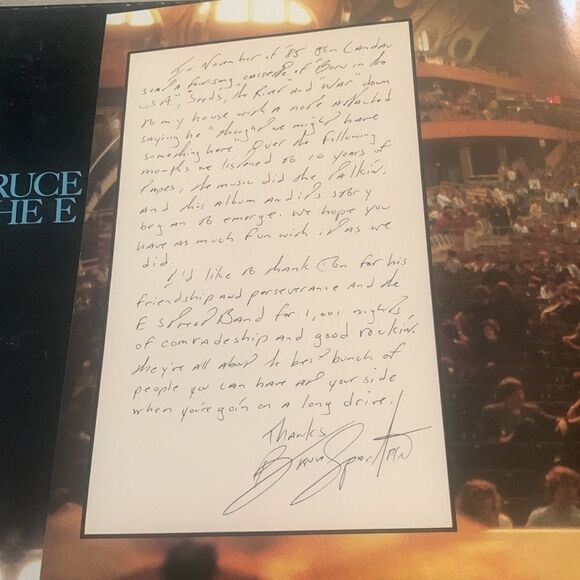 RUCE
HE E
In November of '85 Jon Landau
sent a four song cassette of "Born in the
U.S.A.", "Seeds", the River and "War" down
to my house with a note attached
saying he "thought we might have
something here." Over the following
months we listened to 10 years of
tapes, the music did the talkin',
and this album and it's story
began to emerge. We hope you
have as much fun with it as we
did.
I'd like to thank Jon for his
friendship and perseverance and the
E Street Band for 1,001 nights
of comradeship and good rockin'.
they're all about the best bunch of
people you can have at your side
when you're goin' on a long drive.
Thanks
Bruce Springsteen